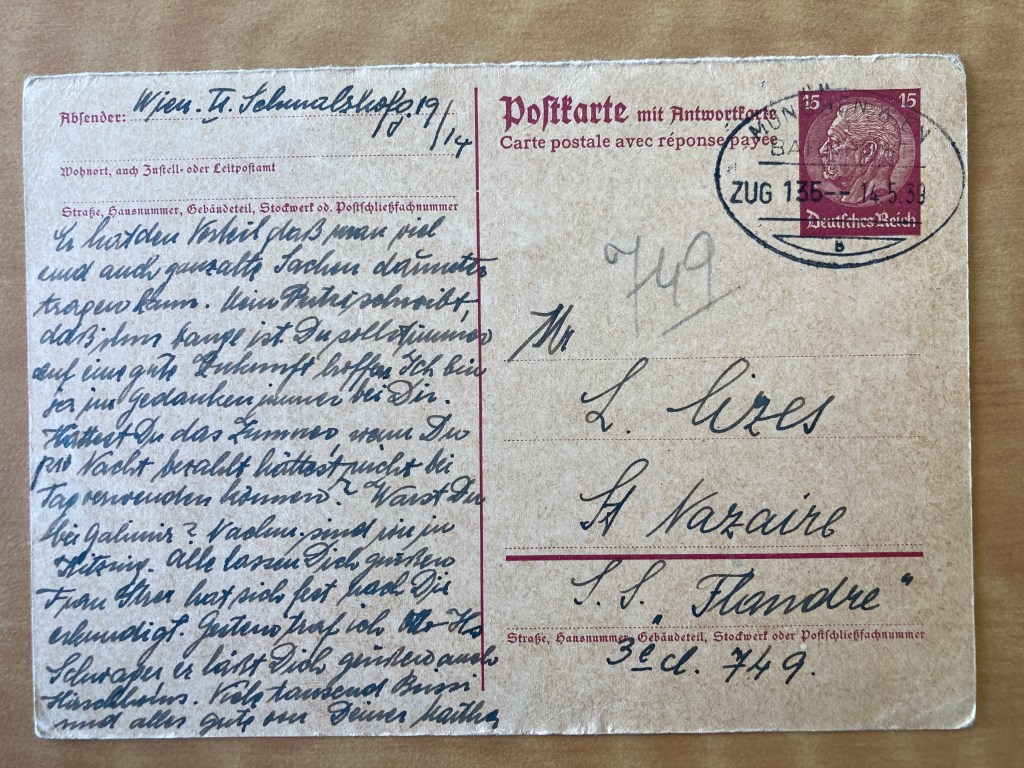 Absender: Wien. II. Schmalzhofg. 19/14
Wohnort, auch Zustell- oder Leitpostamt
Straße, Hausnummer, Gebäudeteil, Stockwerk od. Postschließfachnummer
Er hat den Vorteil, daß man viel
und auch ganz alte Sachen
tragen kann. schreibt,
daß ihm bange ist. Du sollst immer
auf eine gute Zukunft hoffen. Ich bin
ja in Gedanken immer bei Dir.
Hättest Du das Zimmer, wenn Du
pro Nacht bezahlt hättest, nicht bei
Tag verwenden können? Warst Du
bei ? Nachm. sind wir in
Alle lassen Dich grüßen
Frau hat sich nach Dir
erkundigt. Gestern traf ich
Schwager er läßt Dich grüßen auch
Viele tausend Bussi
und alles gute von Deiner Martha
Postkarte mit Antwortkarte
Carte postale avec réponse payée
15 15
Deutsches Reich
MÜNCHEN
ZUG 136-- 14.5.39
B
749
Mr
L. Cizes
St Nazaire
S. S. "Flandre"
Straße, Hausnummer, Gebäudeteil, Stockwerk oder Postschließfachnummer
3e cl. 749.